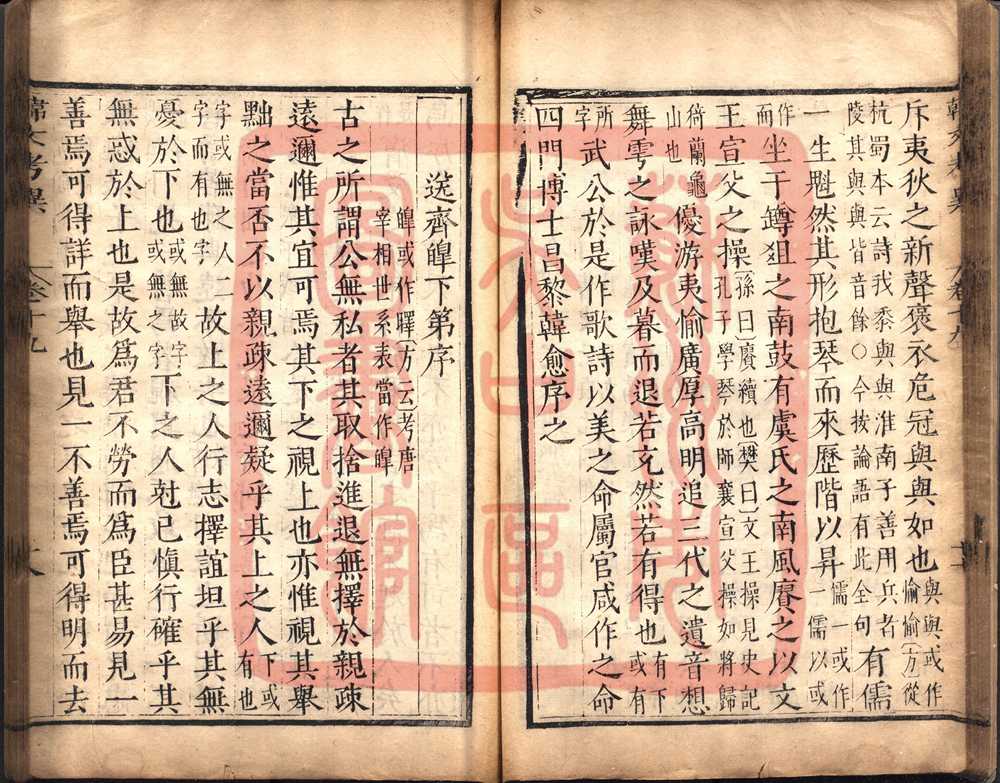 斥夷狄之新聲褒衣危冠與與如也與與或作愉愉方從
杭蜀本云詩我黍與與淮南子善用兵者陵其與與皆音餘○今按論語有此全句有儒
一生魁然其形抱琴而來歷階以昇儒一或作一儒以或
作而坐于罇俎之南鼓有虞氏之南風賡之以文
王宣父之操孫曰賡續也樊曰文王操見史記孔子學琴於師襄宣父操如將歸
猗蘭龜山也優游夷愉廣厚高明追三代之遺音想
舞雩之詠嘆及暮而退若充然若有得也有下或有
所字武公於是作歌詩以美之命屬官咸作之命
四門博士昌黎韓愈序之
送齊皥下第序
皥或作曎方云考唐宰相世系表當作皥
古之所謂公無私者其取捨進退無擇於親疎
遠邇惟其宜可焉其下之視上也亦惟視其舉
黜之當否不以親疎遠邇疑乎其上之人下或有也
字或無之人二字而有也字故上之人行志擇誼坦乎其無
憂於下也或無故字或無之字下之人尅己愼行確乎其
無惑於上也是故爲君不勞而爲臣甚易見一
善焉可得詳而舉也見一不善焉可得明而去
韓文考異
卷十九